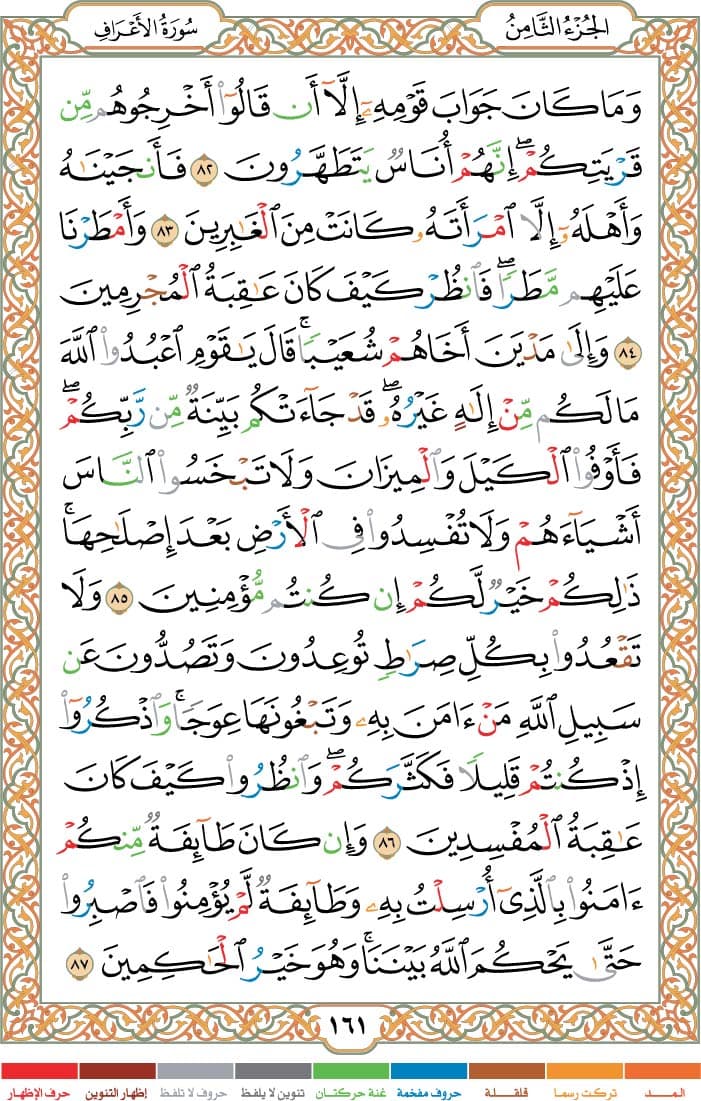 الجُزْءُ الثَّامِنُ
سُورَةُ الأَعْرَافِ
وَمَا كَانَ جَوَابَ قَوْمِهِۦٓ إِلَّآ أَن قَالُوٓا۟ أَخْرِجُوهُم مِّن
قَرْيَتِكُمْ ۖ إِنَّهُمْ أُنَاسٌ يَتَطَهَّرُونَ ٨٢ فَأَنجَيْنَـٰهُ
وَأَهْلَهُۥٓ إِلَّا ٱمْرَأَتَهُۥ كَانَتْ مِنَ ٱلْغَـٰبِرِينَ ٨٣ وَأَمْطَرْنَا
عَلَيْهِم مَّطَرًا ۖ فَٱنظُرْ كَيْفَ كَانَ عَـٰقِبَةُ ٱلْمُجْرِمِينَ
٨٤ وَإِلَىٰ مَدْيَنَ أَخَاهُمْ شُعَيْبًا ۗ قَالَ يَـٰقَوْمِ ٱعْبُدُوا۟ ٱللَّهَ
مَا لَكُم مِّنْ إِلَـٰهٍ غَيْرُهُۥ ۖ قَدْ جَآءَتْكُم بَيِّنَةٌ مِّن رَّبِّكُمْ ۖ
فَأَوْفُوا۟ ٱلْكَيْلَ وَٱلْمِيزَانَ وَلَا تَبْخَسُوا۟ ٱلنَّاسَ
أَشْيَآءَهُمْ وَلَا تُفْسِدُوا۟ فِى ٱلْأَرْضِ بَعْدَ إِصْلَـٰحِهَا ۚ
ذَٰلِكُمْ خَيْرٌ لَّكُمْ إِن كُنتُم مُّؤْمِنِينَ ٨٥ وَلَا
تَقْعُدُوا۟ بِكُلِّ صِرَٰطٍ تُوعِدُونَ وَتَصُدُّونَ عَن
سَبِيلِ ٱللَّهِ مَنْ ءَامَنَ بِهِۦ وَتَبْغُونَهَا عِوَجًا ۚ وَٱذْكُرُوٓا۟
إِذْ كُنتُمْ قَلِيلًا فَكَثَّرَكُمْ ۖ وَٱنظُرُوا۟ كَيْفَ كَانَ
عَـٰقِبَةُ ٱلْمُفْسِدِينَ ٨٦ وَإِن كَانَ طَآئِفَةٌ مِّنكُمْ
ءَامَنُوا۟ بِٱلَّذِىٓ أُرْسِلْتُ بِهِۦ وَطَآئِفَةٌ لَّمْ يُؤْمِنُوا۟ فَٱصْبِرُوا۟
حَتَّىٰ يَحْكُمَ ٱللَّهُ بَيْنَنَا ۚ وَهُوَ خَيْرُ ٱلْحَـٰكِمِينَ ٨٧
١٦١
المـــد تركت رسما قلقـــلة حروف مفخمة غنة حركتـان تنوين لا يلفظ حروف لا تلفظ إظهار التنوين حرف الإظهار